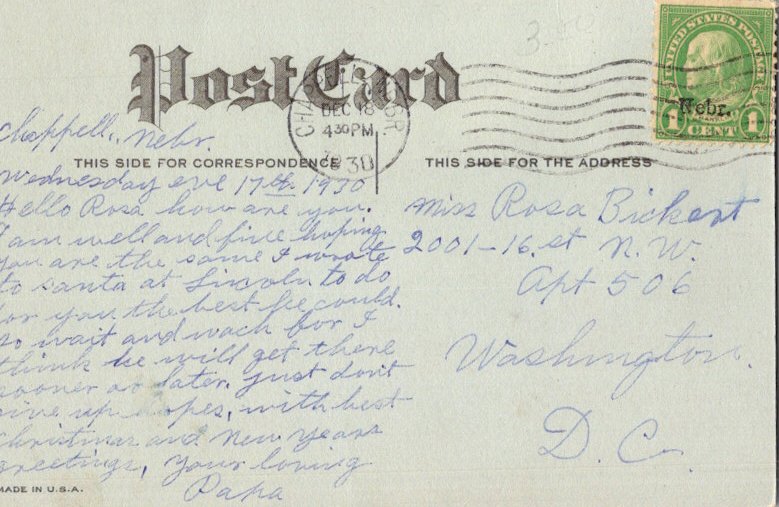 Post Card
CHAPPELL NEBR.
DEC 18
4 30 PM
1930
UNITED STATES POSTAGE
Nebr.
1 CENT 1
Chappell, Nebr.
THIS SIDE FOR CORRESPONDENCE
THIS SIDE FOR THE ADDRESS
Wednesday eve 17th 1930
Hello Rosa how are you.
I am well and fine hoping
you are the same I wrote
to santa at Lincoln to do
for you the best he could.
so wait and wach for I
think he will get there
sooner or later. just don't
give up hopes, with best
Christmas and New Years
greetings, your loving
Papa
Miss Rosa Bickert
2001-16. st N.W.
Apt 506
Washington.
D. C.
MADE IN U.S.A.